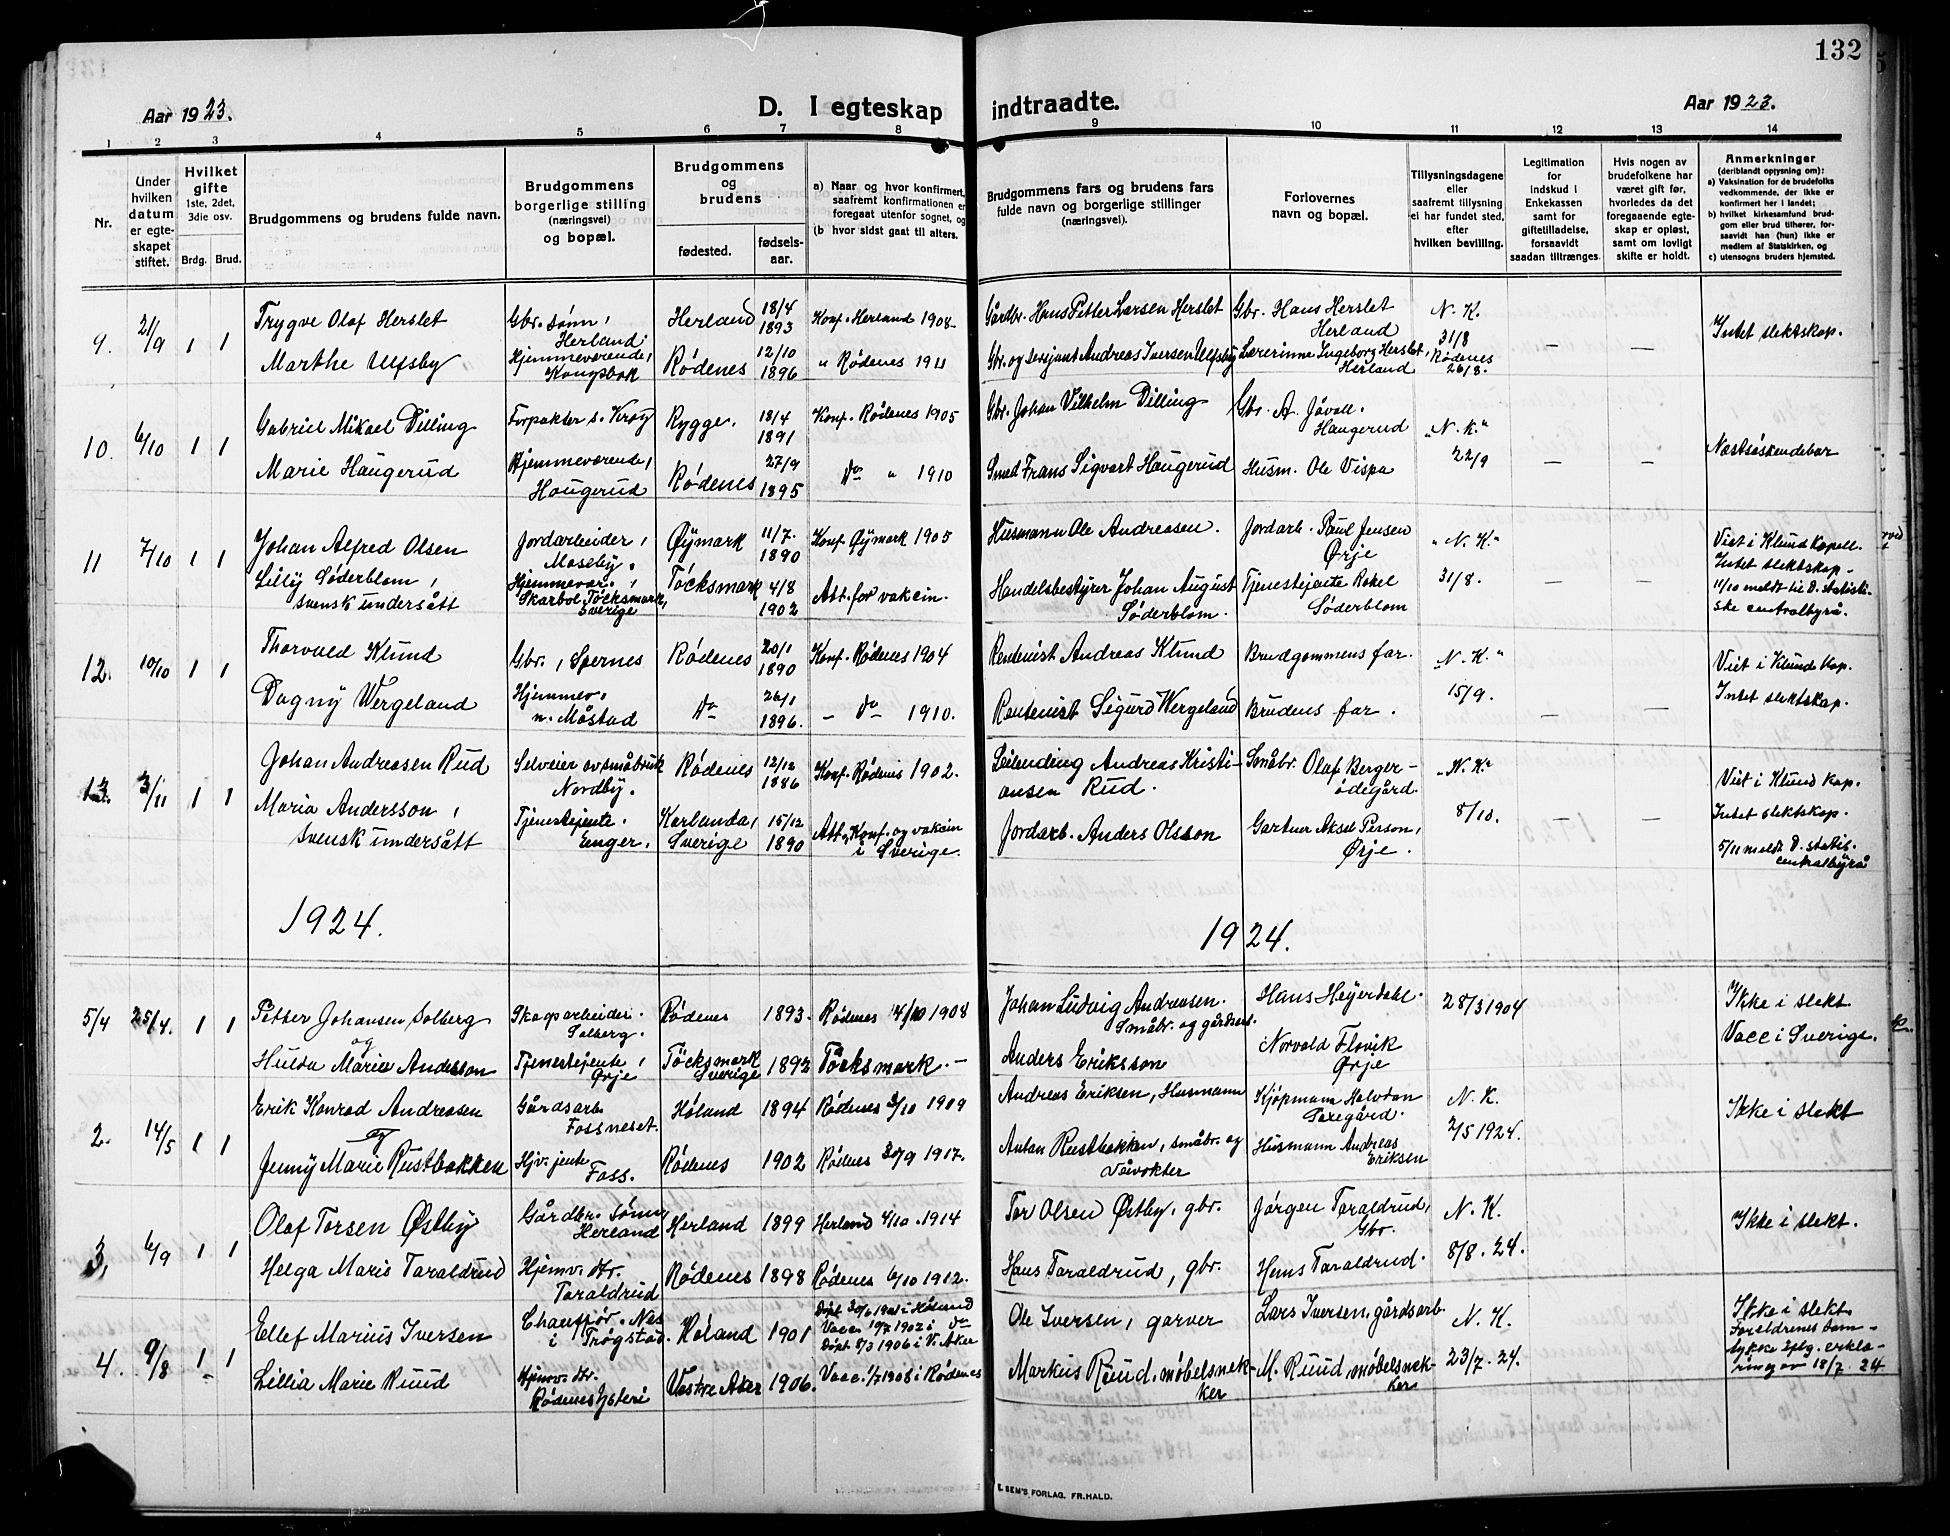 132
Aar 1923.
D. I egteskap indtraadte.
Aar 1923.
1 2 3 4 5 6 7 8 9 10 11 12 13 14
Nr.
Under hvilken datum er egteskapet stiftet.
Hvilket gifte 1ste, 2det, 3die osv.
Brdg. Brud.
Brudgommens og brudens fulde navn.
Brudgommens borgerlige stilling (næringsvei) og bopæl.
Brudgommens og brudens
fødested. fødsels-aar.
a) Naar og hvor konfirmert, saafremt konfirmationen er foregaat utenfor sognet, og
(b hvor sidst gaat til alters.
Brudgommens fars og brudens fars fulde navn og borgerlige stillinger (næringsvei).
Forlovernes navn og bopæl.
Tillysningsdagene eller saafremt tillysning ei har fundet sted, efter hvilken bevilling.
Legitimation for indskud i Enkekassen samt for giftetilladelse, forsaavidt saadan tiltrænges.
Hvis nogen av brudefolkene har været gift før, hvorledes da det foregaaende egteskap er opløst, samt om lovligt skifte er holdt.
Anmerkninger
(deriblandt oplysning om):
a) Vaksination for de brudefolks vedkommende, der ikke er konfirmert her i landet;
b) hvilket kirkesamfund brudgom eller brud tilhører, forsaavidt han (hun) ikke er medlem av Statskirken, og
c) utensogns bruders hjemsted.
9. 2/9 1 1 Trygve Olaf Herslet Gbr. sønn, Herland Herland 18/4 1893 Konf. Herland 1908 Gårdbr. Hans Petter Larsen Herslet Gbr. Hans Herslet Herland N. K. 31/8 Intet slektskap.
Marthe Ulfsby, Hjemmeværende, Rødenes 12/10 1896 " Rødenes 1911 Gbr. og Sersjant Andreas Iversen Ulfsby Lærerinne Ingeborg Herslet, Herland Rødenes 26/8. — —
10. 6/10 1 1 Gabriel Mikael Dilling Forpakter s. Krog Rygge. 18/4 1891 Konf. Rødenes 1905 Gbr. Johan Vilhelm Dilling Gbr. A. Jåvall Haugerud "N. K." Næstsøskendebar
Marie Haugerud Hjemmeværende, Haugerud Rødenes 27/9 1895 Do " 1910 Smed Frans Sigvart Haugerud Husm. Ole Vispa 22/9 — —
11 7/10 1 1 Johan Alfred Olsen Jordarbeider, Moseby. Øymark 11/7. 1890 Konf. Øymark 1905 Husmann Ole Andreasen. Jordarb. Paul Jensen Ørje "N. K." Viet i Klund Kapell. Intet slektskap.
Lilly Søderblom, svensk undersått Hjemmevær., Skarbol, Töcksmark, Sverige Töcksmark 4/8 1902 Att. for vakcin. Handelsbestyrer Johan August Søderblom. Tjenestejente Rakel Søderblom 31/8. 11/10 meldt til D. statistiske centralbyrå.
12. 10/10 1 1 Thorvald Klund Gbr., Spernes Rødenes 20/1 1890 Konf. Rødenes 1904 Rentenist Andreas Klund Brudgommens far. "N. K." Viet i Klund Kap.
Dagny Wergeland Hjemmev. n. Måstad Do 26/1 1896. — Do — 1910. Rentenist Sigurd Wergeland Brudens far. 15/9. — — Intet slektskap.
13 3/11 1 1 Johan Andreasen Rud Selveier av småbruk Nordby. Rødenes 12/12 1886 Konf. Rødenes 1902. Leilending Andreas Kristiansen Rud. Småbr. Olaf Bergerødegård. "N. K." Viet i Klund Kap.
Maria Andersson, svensk undersått Tjenestejente Enger. Karlanda, Sverige 15/12 1890 Att. Konf. og vakcin i Sverige. Jordarb. Anders Olsson Gartner Aksel Person, Ørje. 8/10. — — Intet slektskap. 5/11 meldt D. statis. centralbyrå
1924. 1924.
5/4 25/4. 1 1 Petter Johansen Solberg Skogsarbeider. Solberg. Rødenes 1893. Rødenes 4/10 1908 Johan Ludvig Andreasen. Småbr. og gårdsarb. Hans Heyerdahl. 28/3 1904 Ikke i slekt
og
Hulda Marie Andersson Tjenestejente, Ørje Töcksmark Sverige 1892 Töcksmark. — Anders Eriksson Norvald Flovik Ørje Vacc i Sverige.
2. 14/5 1 1 Erik Konrad Andreasen Gårdsarb. Fossneset. Høland 1894 Rødenes 3/10 1909 Andreas Eriksen, Husmann Kjøpmann Halvdan Faregård. N. K. Ikke i slekt
og
Jenny Marie Rustbakken Hjv. jente Foss. Rødenes 1902 Rødenes 30/9 1917. Anton Rustbakken, småbr. og Husmann Andreas Eriksen 2/5 1924.
3, 6/9 1 1 Olaf Torsen Østby Gårdbr. sønn, Herland Herland 1899 Herland 4/10. 1914 Tor Olsen Østby, gbr. Jørgen Taraldrud, Gbr. N. K. Ikke i slekt.
Helga Marie Taraldrud Hjemv. dtr. Taraldrud Rødenes 1898 Rødenes 6/10 1912. Hans Taraldrud, gbr. Hans Taraldrud. 8/8. 24.
4. 9/8 1 1 Ellef Marius Iversen Chauffør. Nes i Trøgstad. Høland 1901 Døpt 30/6 1901 i Høland Vacc. 19/7 1902 i do Ole Iversen, garver Lars Iversen, gårdsarb N. K. Ikke i slekt. Foreldrenes samtykke iflg. erklæring av 18/7. 24
Lillia Marie Ruud Hjemv. dtr. Rødenes Ysteri Vestre Aker 1906. Døpt 5/3 1906 i V. Aker Vacc. 1/7 1908 i Rødenes Markus Ruud, møbelsnekker M. Ruud, møbelsnekker 23/7. 24.
E. SEM'S FORLAG. FR.HALD.